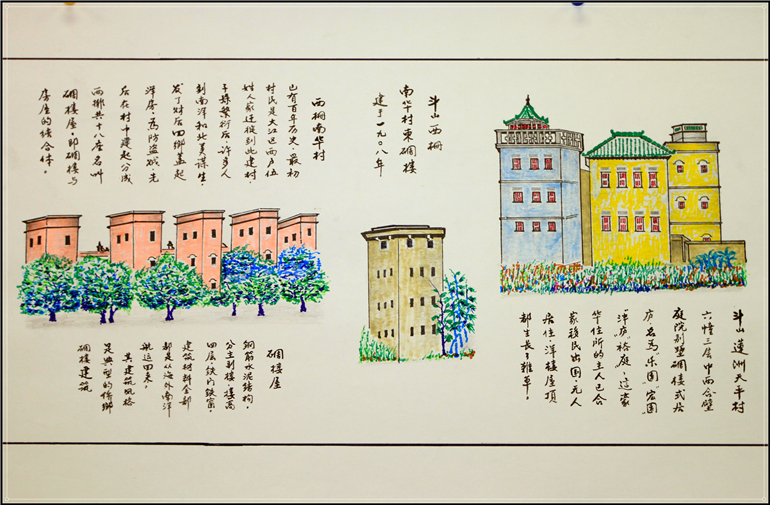 斗山莲洲天平村
六幢三层中西合壁
庭院别墅碉楼式居
庐名为乐園,宏園
泽庐,裕庭,这豪
华住所的主人已合
家移民出国,无人
居住,洋楼屋顶
都生长了雑草!
斗山西栅
南华村東碉楼
建于一九〇八年
西栅南华村
已有百年历史,最初
村民是大江区西户伍
姓人家迁徙到此建村,
子孫繁衍后,许多人
到南洋和北美谋生,
发了财后回乡盖起
洋房,为防盗贼,先
后在村中建起分成
两排共十八座名叫
碉楼屋,即碉楼与
房屋的综合体。
碉楼屋
钢筋水泥结构,
分主副楼,楼高
四层,铁门铁窗,
建筑材料全部
都是从海外南洋
航运回来。
其建筑风格
是典型的侨鄉
碉楼建筑